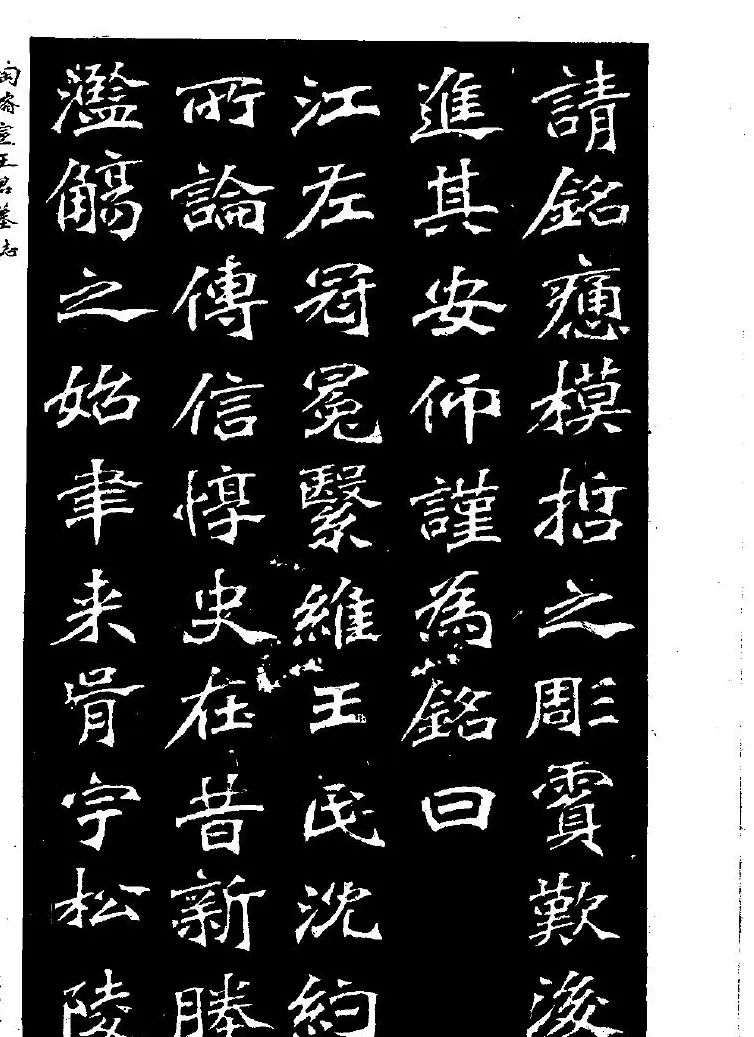 請銘模哲之彫霣歎浚
進其安仰謹為銘曰
江左冠冕繫維王氏沈約
所論傳信惇史在昔新塍
濫觴之始聿来胥宇松陵
陶濬宣王君墓志